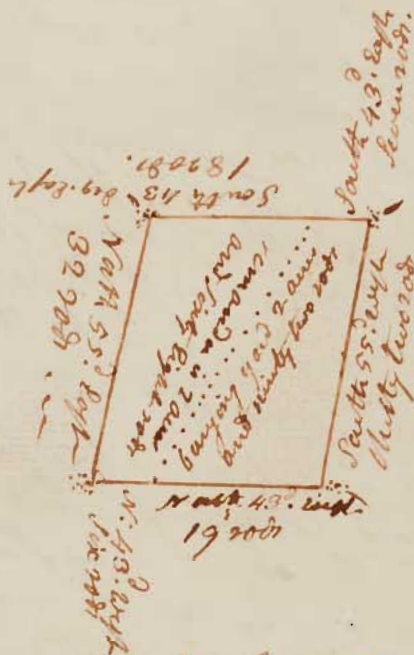 South 43 Deg. East
18 rods.
South 43.d East
Seven rods
North 55.d East
32 rods
South 55.d West
thirty two rods
North 43.d west
19 rods
N. 43.d West
Six rods
2 acres
and sixty Eight rods
2 acres
and ninety two rods